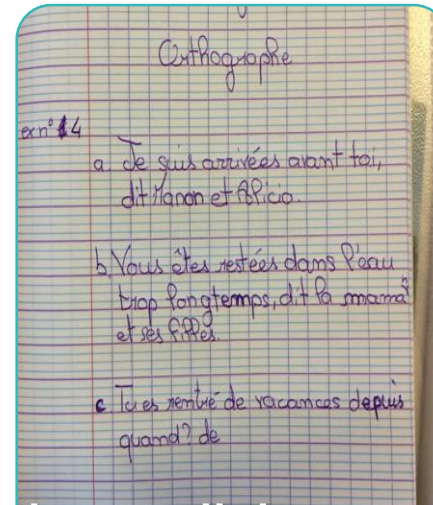 Orthographe
ex n° 14
a. Je suis arrivées avant toi,
dit Manon et Alicia.
b. Vous êtes restées dans l'eau
trop longtemps, dit la mamá
et ses filles.
c. Tu es rentré de vacances depuis
quand? de